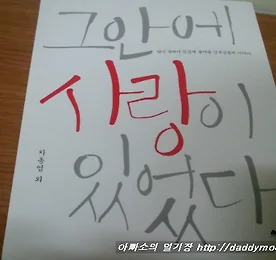 그 안에
사랑이
있었다
차동엽 외
아빠소의 일기장 http://daddymo